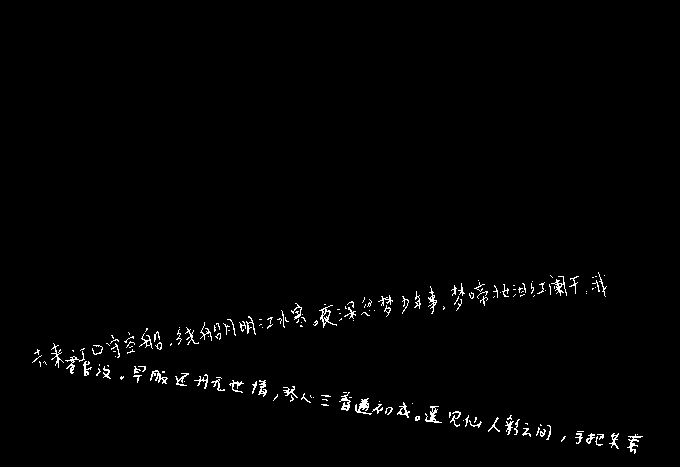 去来江口守空船,绕船月明江水寒。夜深忽梦少年事,梦啼妆泪红阑干,我
苍苔没。早服还丹无世情,琴心三叠道初成。遥见仙人彩云间,手把芙蓉